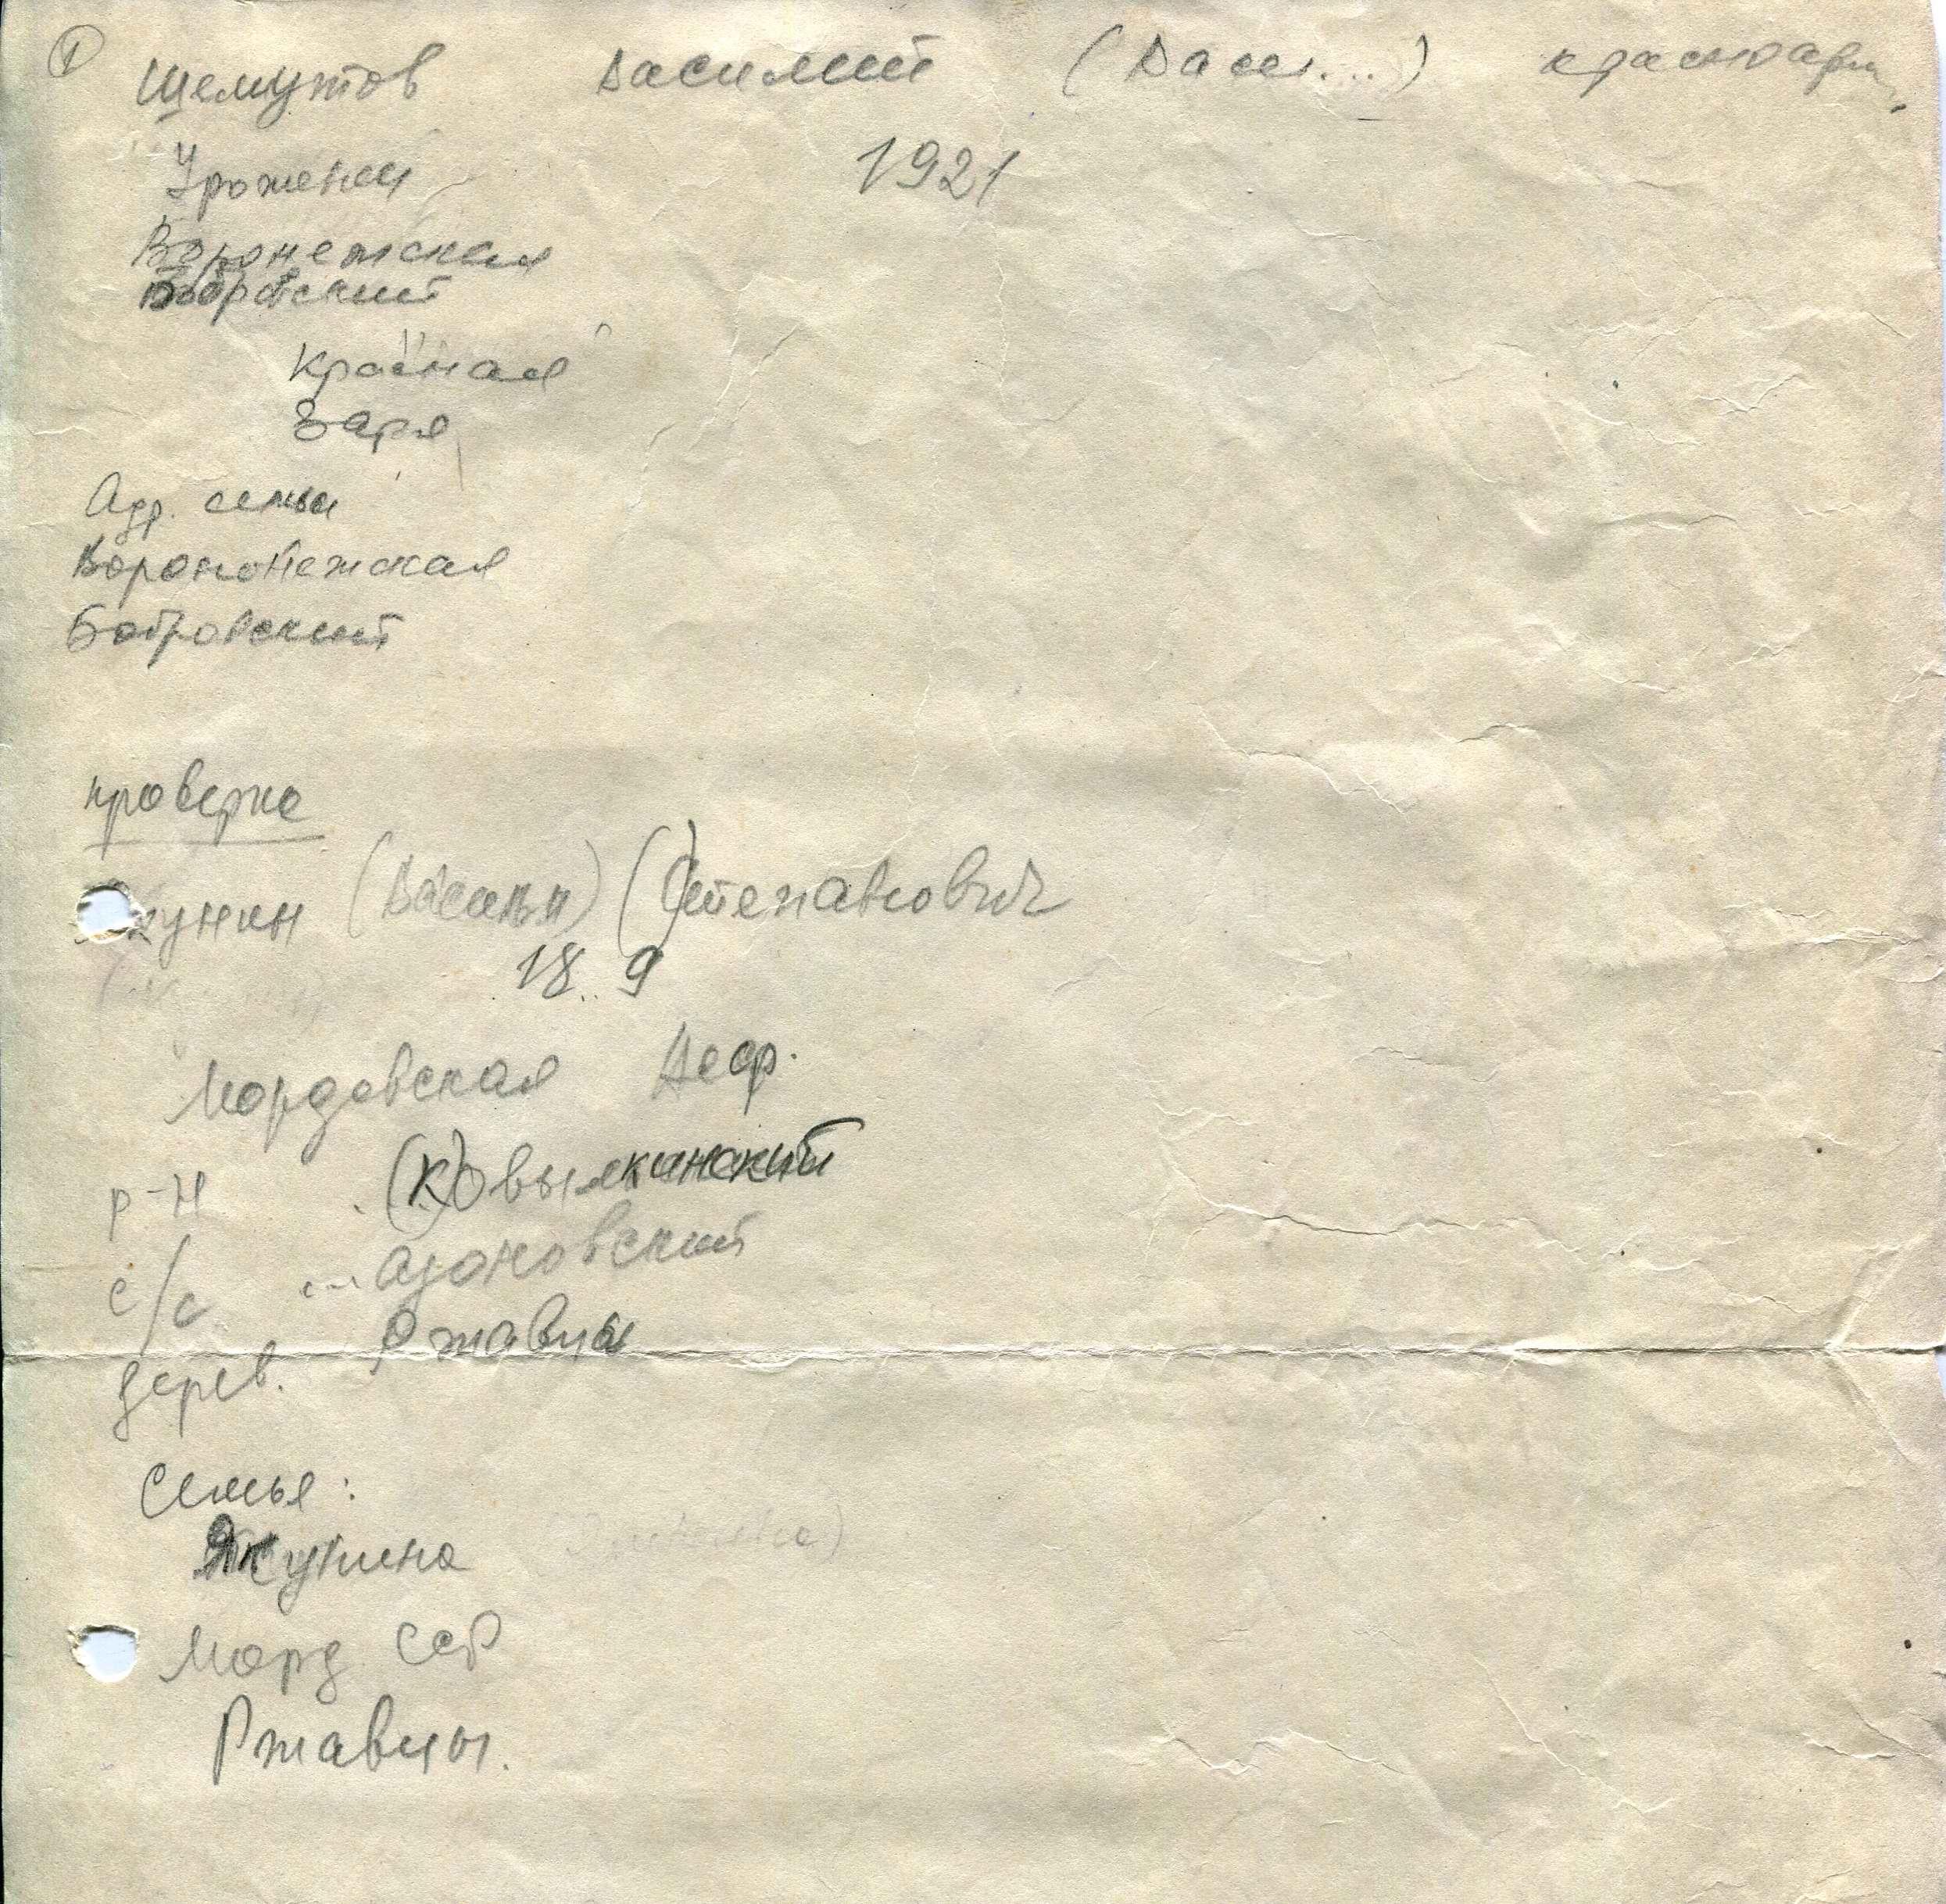 ① Шемутов Василий (Васи....) красноарм.
Уроженец 1921
Воронежская
Бобровский
"Красная"
Заря
Адр. семьи
Ворононежская
Бобровский
проверка
кунин (Васильи) (С)тепанович
18..9
Мордовская
р-н (К)овылкинский
с/с ...адоновский
дерев. Ржавцы
Семья:
Якунина
Морд ССР
Ржавцы.